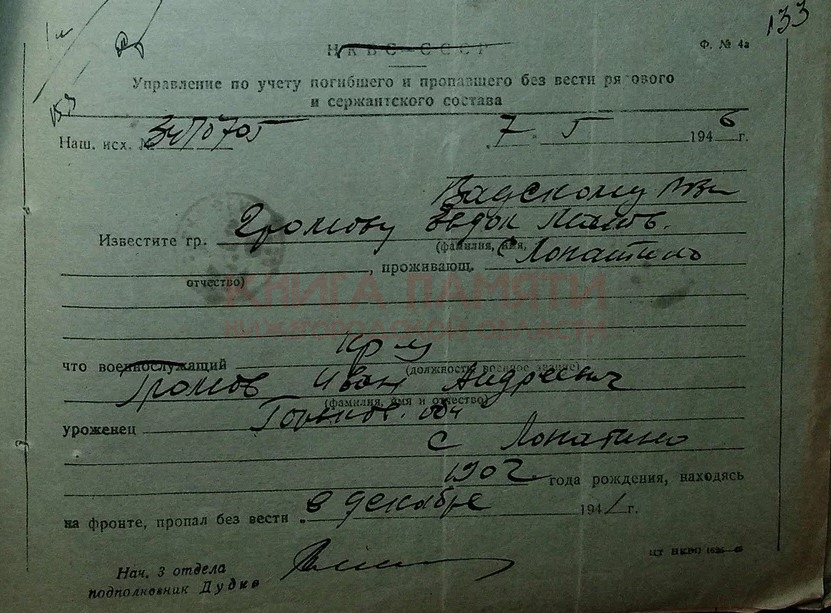 133
НКВС-СССР
Ф. № 4а
Управление по учету погибшего и пропавшего без вести рядового
и сержантского состава
153
Наш. исх. №
„7" 5 1946 г.
Вадскому РВК
Известите гр. Громову Евдок
(фамилия, имя,
с Лопатино
, проживающ.
отчество)
КНИГА ПАМЯТИ
НИЖЕГОРОДСКОЙ ОБЛАСТИ
что военнослужащий кр-ц
(должность, военное звание)
Громов Иван Андреевич
(фамилия, имя и отчество)
уроженец Горьков. обл
с Лопатино
1902 года рождения, находясь
на фронте, пропал без вести „ в декабре 1941 г.
Нач. 3 отдела
подполковник Дудко